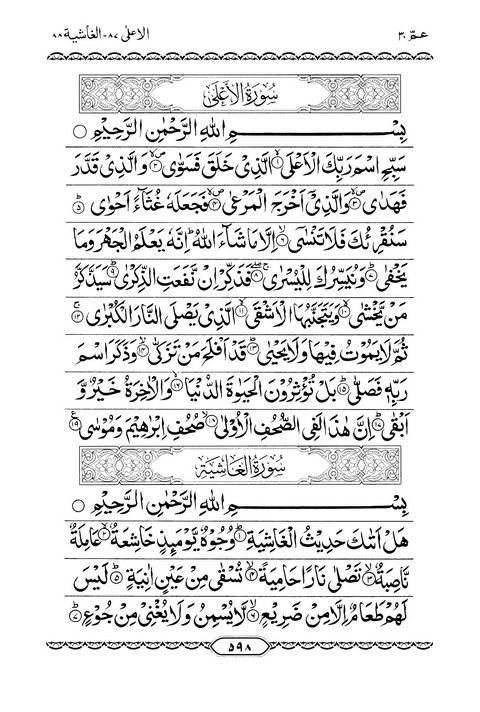 عمّ ٣٠ الاعلىٰ ٨٧-الغاشية ٨٨
سُوْرَةُ الْأَعْلٰى
بِسْمِ اللهِ الرَّحْمٰنِ الرَّحِيْمِ ○
سَبِّحِ اسْمَ رَبِّكَ الْاَعْلَى ۙ﴿۱﴾ الَّذِىْ خَلَقَ فَسَوّٰى ۙ﴿۲﴾ وَالَّذِىْ قَدَّرَ
فَهَدٰى ۙ﴿۳﴾ وَالَّذِىْٓ اَخْرَجَ الْمَرْعٰى ۙ﴿۴﴾ فَجَعَلَهٗ غُثَآءً اَحْوٰى ﴿۵﴾
سَنُقْرِئُكَ فَلَا تَنْسٰٓى ۙ﴿۶﴾ اِلَّا مَا شَآءَ اللهُ ؕ اِنَّهٗ يَعْلَمُ الْجَهْرَ وَمَا
يَخْفٰى ﴿۷﴾ وَنُيَسِّرُكَ لِلْيُسْرٰى ﴿۸﴾ فَذَكِّرْ اِنْ نَّفَعَتِ الذِّكْرٰى ﴿۹﴾ سَيَذَّكَّرُ
مَنْ يَّخْشٰى ۙ﴿۱۰﴾ وَيَتَجَنَّبُهَا الْاَشْقَى ۙ﴿۱۱﴾ الَّذِىْ يَصْلَى النَّارَ الْكُبْرٰى ﴿۱۲﴾
ثُمَّ لَا يَمُوْتُ فِيْهَا وَلَا يَحْيٰى ﴿۱۳﴾ قَدْ اَفْلَحَ مَنْ تَزَكّٰى ۙ﴿۱۴﴾ وَذَكَرَ اسْمَ
رَبِّهٖ فَصَلّٰى ﴿۱۵﴾ بَلْ تُؤْثِرُوْنَ الْحَيٰوةَ الدُّنْيَا ﴿۱۶﴾ وَالْاٰخِرَةُ خَيْرٌ وَّ
اَبْقٰى ﴿۱۷﴾ اِنَّ هٰذَا لَفِى الصُّحُفِ الْاُوْلٰى ۙ﴿۱۸﴾ صُحُفِ اِبْرٰهِيْمَ وَمُوْسٰى ﴿۱۹﴾
سُوْرَةُ الْغَاشِيَةِ
بِسْمِ اللهِ الرَّحْمٰنِ الرَّحِيْمِ ○
هَلْ اَتٰىكَ حَدِيْثُ الْغَاشِيَةِ ﴿۱﴾ وُجُوْهٌ يَّوْمَئِذٍ خَاشِعَةٌ ۙ﴿۲﴾ عَامِلَةٌ
نَّاصِبَةٌ ۙ﴿۳﴾ تَصْلٰى نَارًا حَامِيَةً ۙ﴿۴﴾ تُسْقٰى مِنْ عَيْنٍ اٰنِيَةٍ ﴿۵﴾ لَيْسَ
لَهُمْ طَعَامٌ اِلَّا مِنْ ضَرِيْعٍ ۙ﴿۶﴾ لَّا يُسْمِنُ وَلَا يُغْنِىْ مِنْ جُوْعٍ ﴿۷﴾
۵۹۸